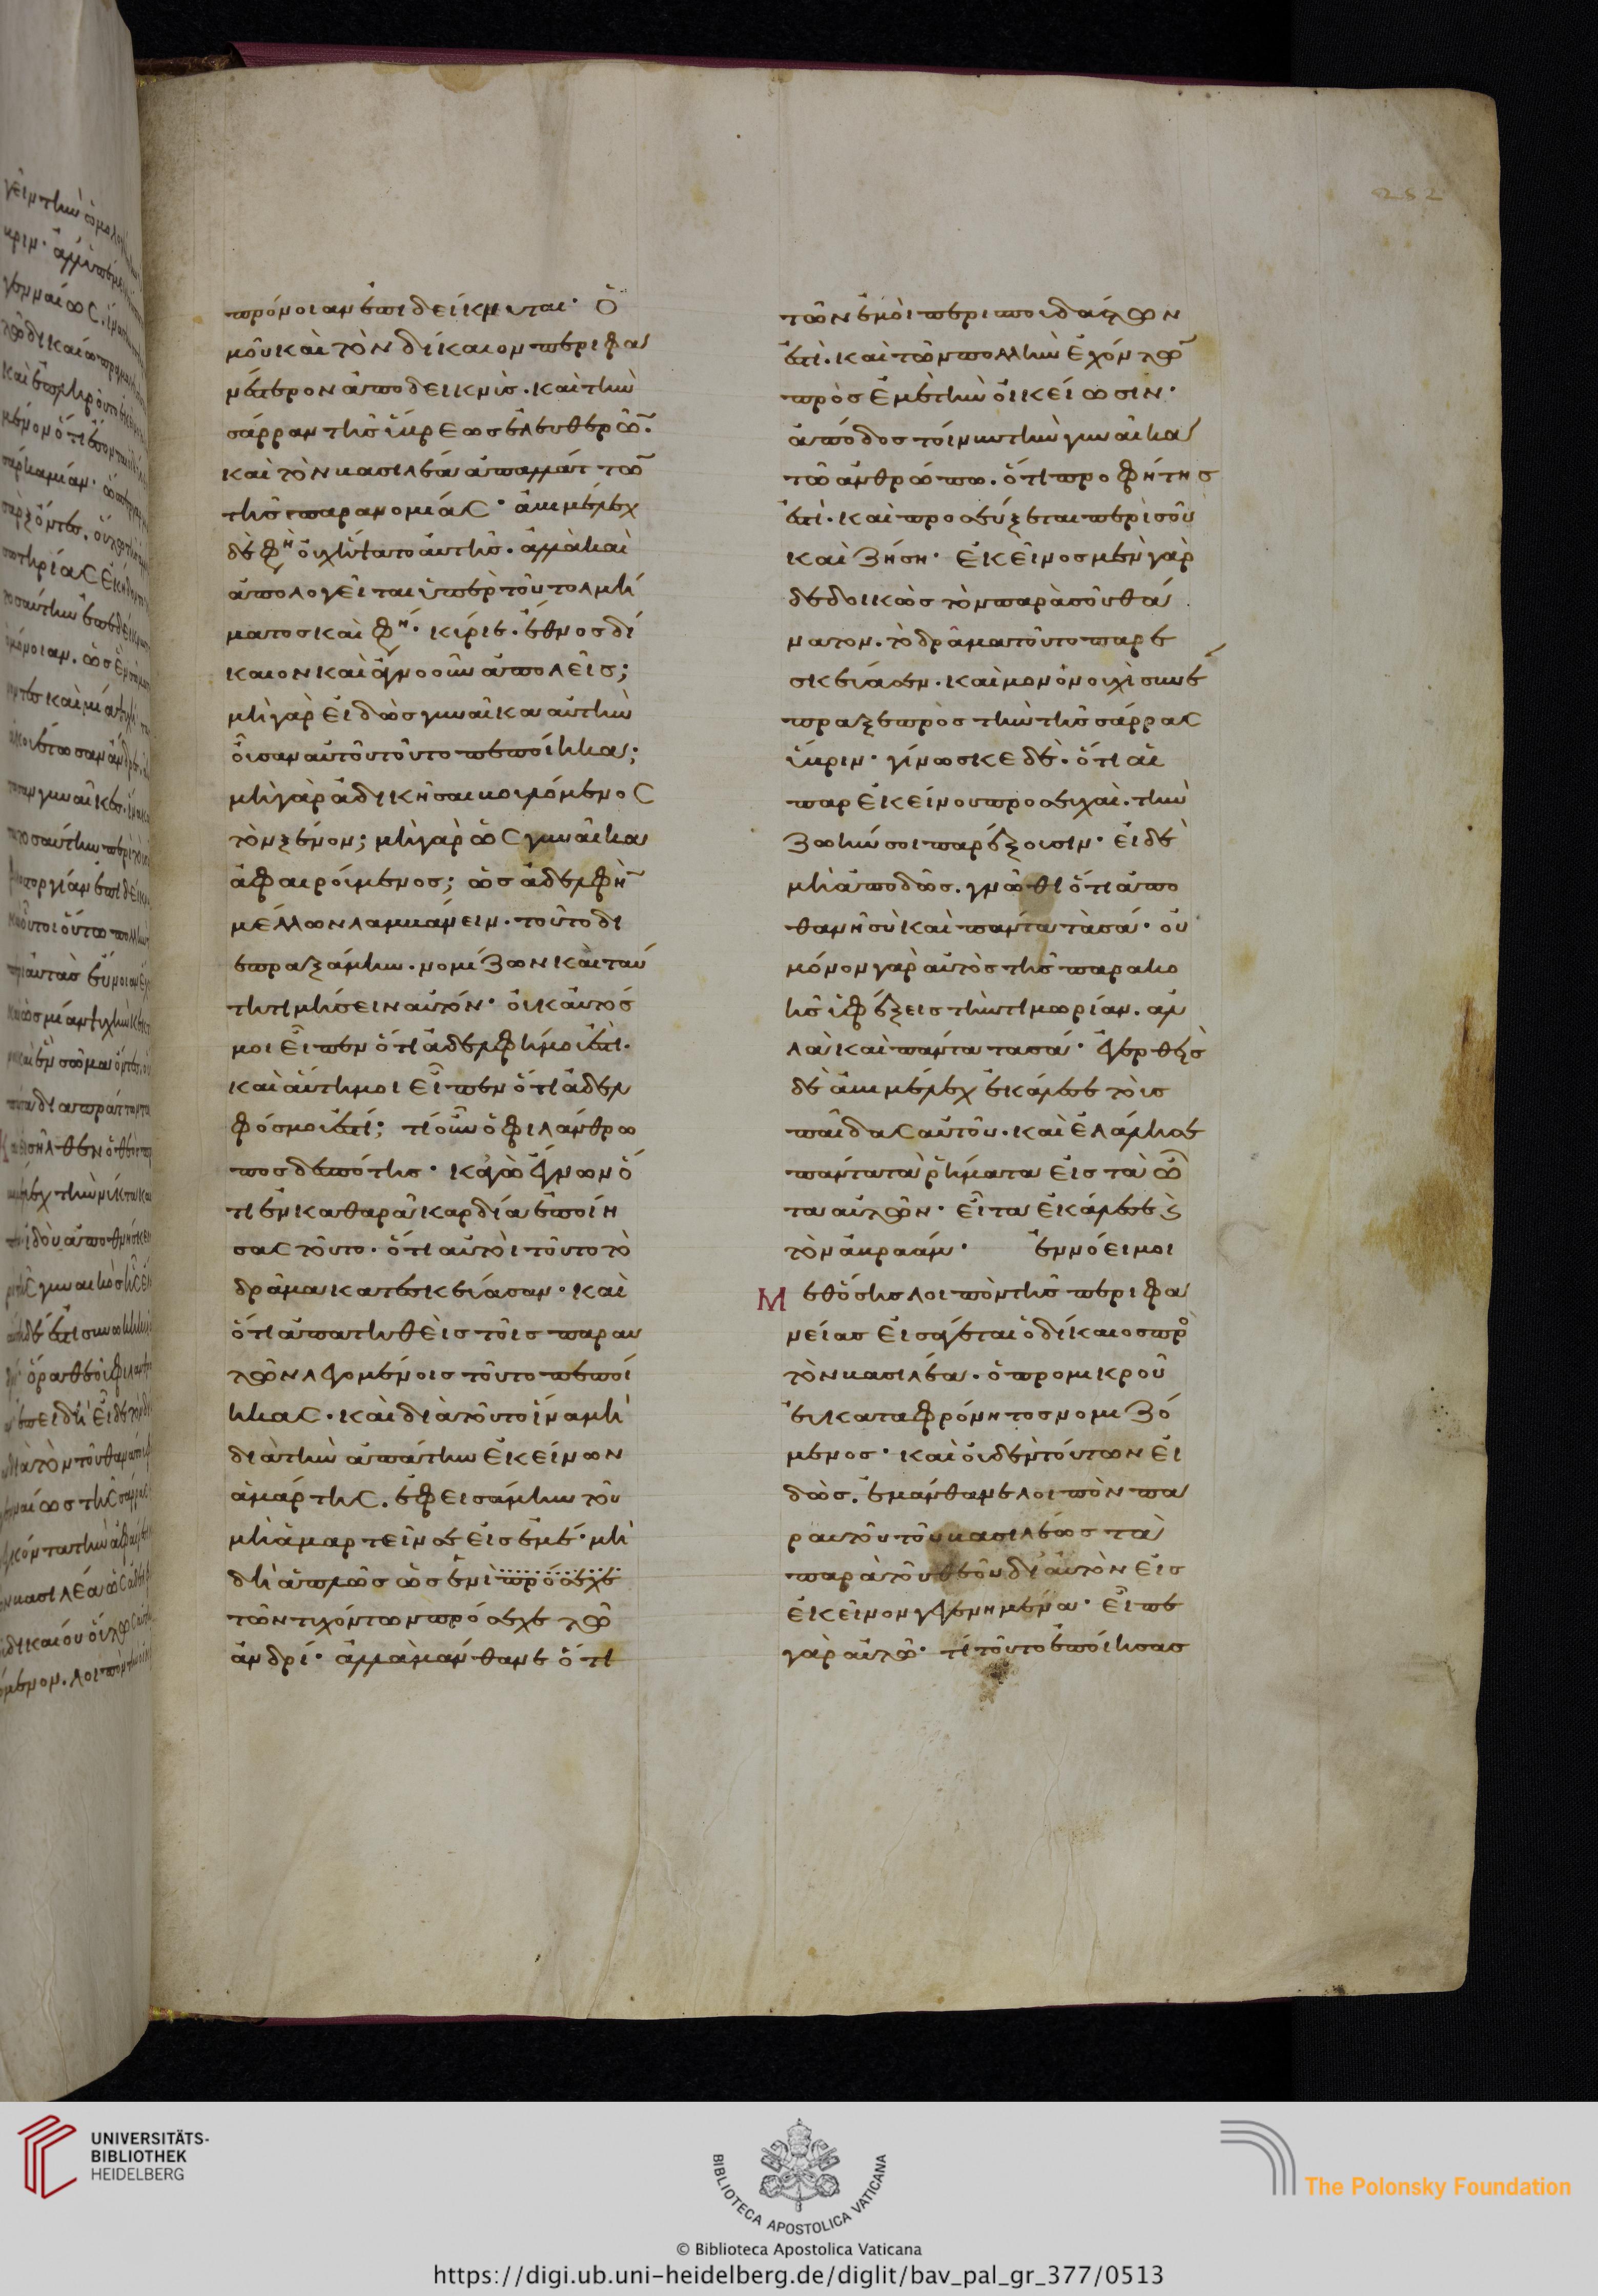 πρόνοιαν ἐπιδείκνυται· ὁ
μοῦ καὶ τὸν δίκαιον περιφα
νέστερον ἀποδεικνὺς. καὶ τὴν
σάρραν τῆς ὕβρεως ἐλευθερῶ̅.
καὶ τὸν βασιλέα ἀπαλλάττω̅
τῆς παρανομίας· ἀβιμέλεχ
δὲ φη οὐχ ἥψατο αὐτῆς. ἀλλὰ καὶ
ἀπολογεῖται ὑπὲρ τοῦ τολμή
ματος καὶ φη· κύριε. ἔθνος δί
καιον καὶ ἀγνοοῦν ἀπολεῖς;
μὴ γὰρ εἰδὼς γυναῖκα αὐτὴν
οὖσαν αὐτοῦ τοῦτο πεποίηκα;
μὴ γὰρ ἀδικῆσαι βουλόμενος
τὸν ξένον; μὴ γὰρ ὡς γυναῖκα
ἀφαιρούμενος; ὡς ἀδελφὴ̅
μέλλων λαμβάνειν. τοῦτο δι
επραξάμην. νομίζων καὶ ταύ
τη τιμήσειν αὐτόν· οὐκ αὐτός
μοι εἶπεν ὅτι ἀδελφή μου ἐστί.
καὶ αὐτή μοι εἶπεν ὅτι ἀδελ
φός μου ἐστί; τί οὖν ὁ φιλάνθρω
πος δεσπότης· κἀγὼ ἔγνων ὅ
τι ἐν καθαρᾶ καρδία ἐποίη
σας τοῦτο. ὅτι αὐτοὶ τοῦτο τὸ
δρᾶμα κατεσκεύασαν· καὶ
ὅτι ἀπατηθεὶς τοῖς παρ αυ
τῶν λεγομένοις τοῦτο πεποί
ηκας. καὶ διὰ τοῦτο ἵνα μὴ
διὰ τὴν ἀπάτην ἐκείνων
ἁμάρτης. ἐφεισάμην τοῦ
μὴ ἁμαρτεῖν σε εἰς ἐμέ· μὴ
δὴ ἁπλῶς ὡς ἑνὶ πρόσεχε
τῶν τυχόντων πρόσεχε τῶ
ἀνδρί· ἀλλὰ μάνθανε ὅτι
τῶν ἐμοὶ περισπουδάστων
ἐστί. καὶ τῶν πολλὴν ἐχόντω̅
πρὸς ἐμὲ τὴν οἰκείωσιν·
ἀπόδος τοίνυν τὴν γυναῖκα
τῶ ἀνθρώπω. ὅτι προφήτης
ἐστί. καὶ προσεύξεται περὶ σοῦ
καὶ ζήση· ἐκεῖνος μὲν γὰρ
δεδοικὼς τὸν παρὰ σοῦ θά
νατον. τὸ δρᾶμα τοῦτο παρε
σκεύασεν. καὶ μονονουχὶ συνέ
πραξε πρὸς τὴν τῆς σάρρας
ὕβριν· γίνωσκε δὲ. ὅτι αἱ
παρ ἐκείνου προσευχαὶ. τὴν
ζωήν σοι παρέξουσιν· εἰ δὲ
μὴ ἀποδῶς. γνῶθι ὅτι ἀπο
θανῆ σὺ καὶ πάντα τὰ σά· οὐ
μόνον γὰρ αὐτὸς τῆς παρακο
ῆς ὑφέξεις τὴν τιμωρίαν. ἀλ
λὰ καὶ πάντα τα σά· ἐγερθεὶς
δὲ ἀβιμέλεχ ἐκάλεσε τοὺς
παῖδας αὐτοῦ. καὶ ἐλάλησε
πάντα τὰ ῥήματα εἰς τὰ ὦ
τα αὐτῶν· εἶτα ἐκάλεσε ϛ
τὸν ἀβραάμ· ἐννόει μοι
μεθ ὅσης λοιπὸν τῆς περιφα
νείας εἰσάγεται ὁ δίκαιος πρὸ
τὸν βασιλέα. ὁ προ μικροῦ
εὐκαταφρόνητος νομιζό
μενος· καὶ οὐδὲν τούτων εἰ
δὼς. ἐμάνθανε λοιπὸν πα
ρ αυτοῦ τοῦ βασιλέως τὰ
παρὰ τοῦ θεοῦ δι αὐτὸν εἰς
ἐκεῖνον γεγενημένα· εἶπε
γὰρ αὐτῶ· τί τοῦτο ἐποίησας
252
UNIVERSITÄTS-
BIBLIOTHEK
HEIDELBERG
BIBLIOTECA APOSTOLICA VATICANA
The Polonsky Foundation
© Biblioteca Apostolica Vaticana
https://digi.ub.uni-heidelberg.de/diglit/bav_pal_gr_377/0513